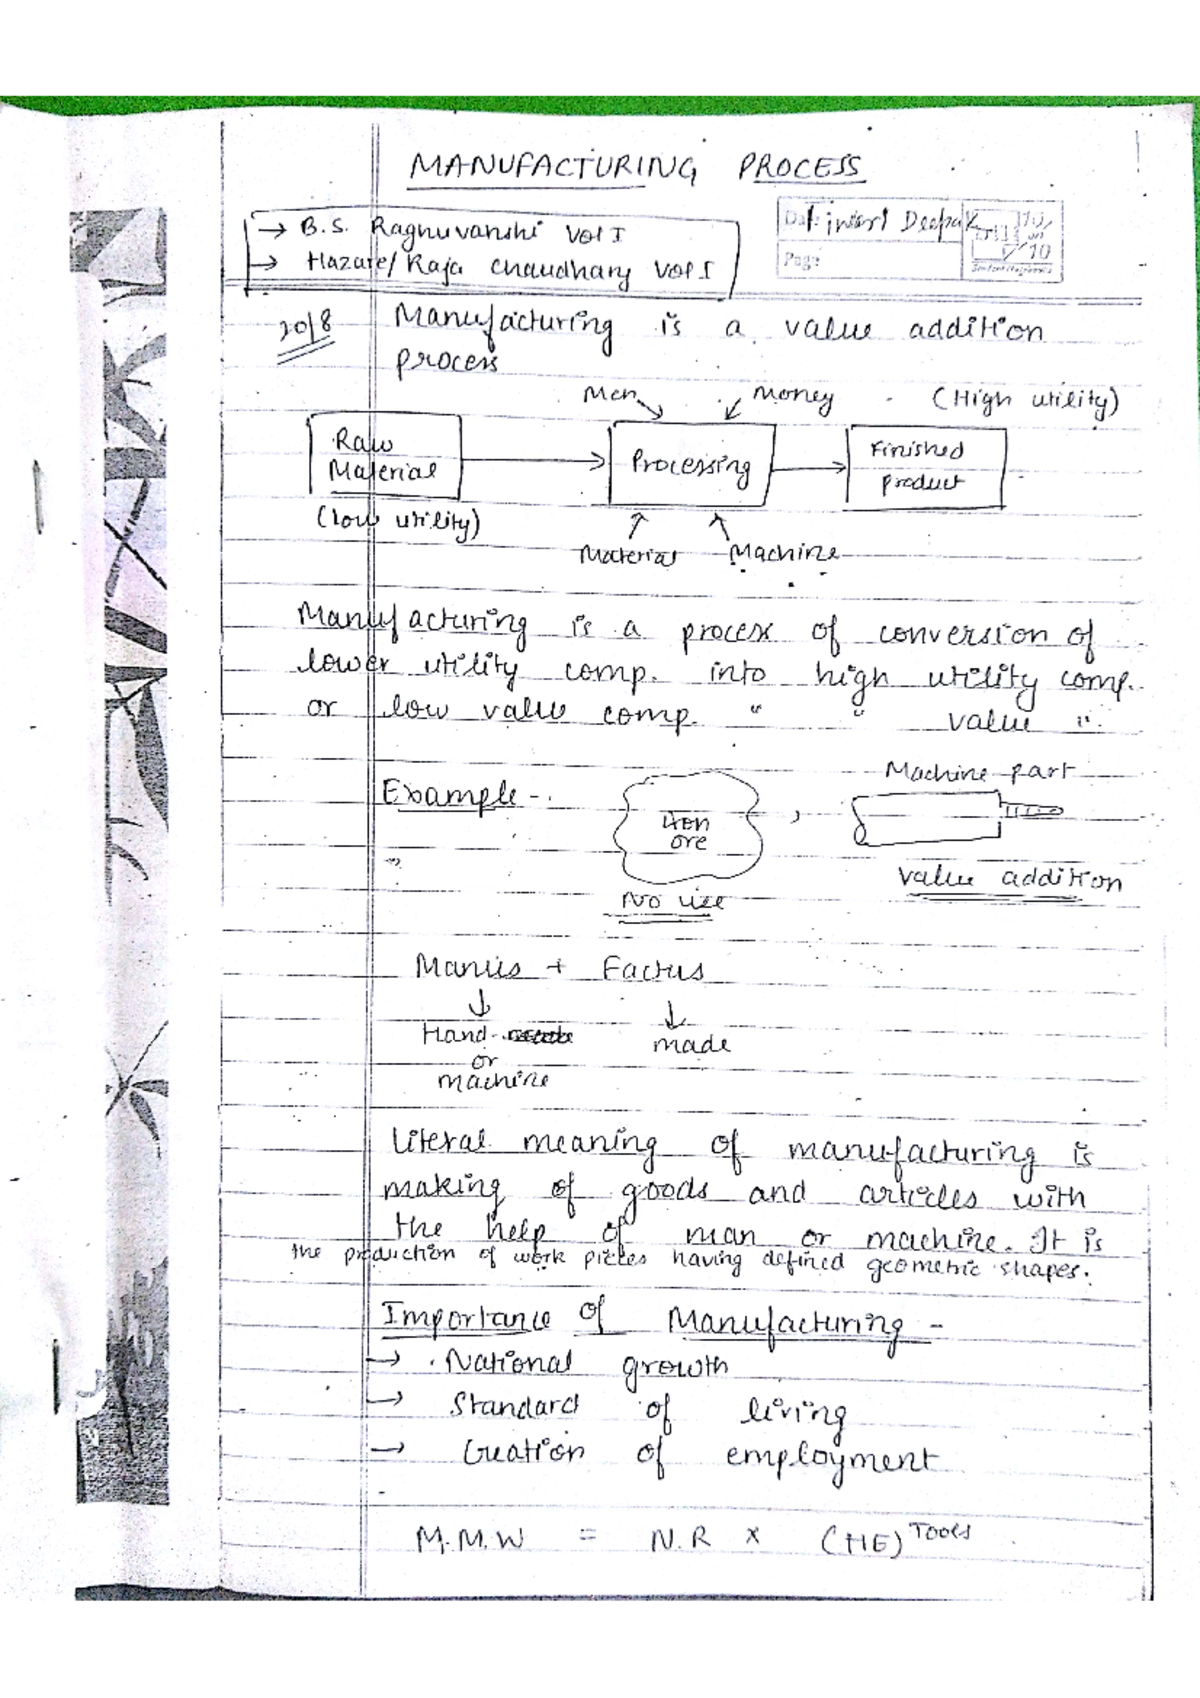 MANUFACTURING PROCESS
→ B.S. Raghuvanshi Vol I
→ Hazare/ Raja Chaudhary Vol I
Deepak
Page
2018
Manufacturing is a value addition
process
Men Money (High utility)
Raw
Material
Processing
Finished
product
(low utility)
Material Machine
Manufacturing is a process of conversion of
lower utility comp. into high utility comp.
or low value comp. " " value ".
Machine part
Example -
Iron
ore
,
No use
Value addition
Manus + Factus
Hand made
or
machine
Literal meaning of manufacturing is
making of goods and articles with
the help of man or machine. It is
the production of work pieces having defined geometric shapes.
Importance of Manufacturing -
→ National growth
→ Standard of living
→ Creation of employment
M.M.W = N.R x (HE)Tools